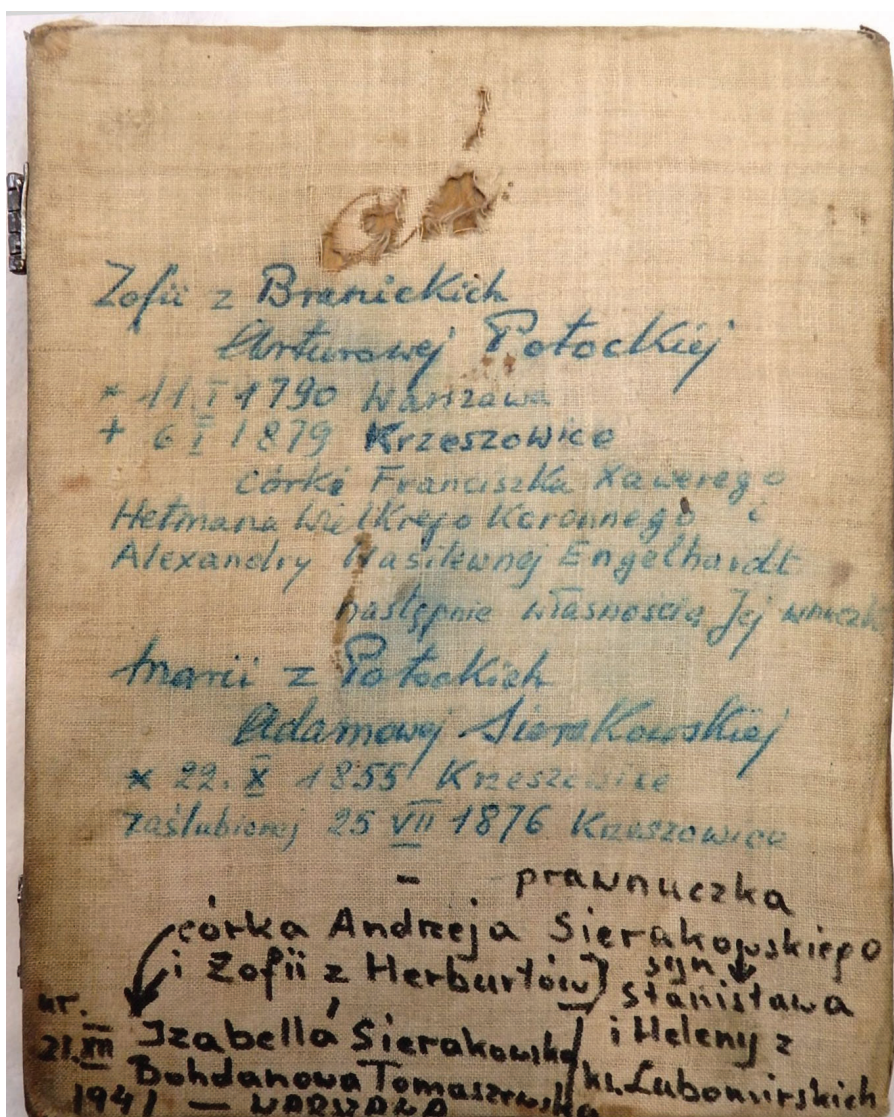 Zofii z Branickich
Arturowej Potockiej
* 11.I 1790 Warszawa
+ 6 I 1879 Krzeszowice
córki Franciszka Xawerego
Hetmana Wielkiego Koronnego i
Alexandry Wasilewnej Engelhardt
następnie własnością Jej wnuczki
Marii z Potockich
Adamowej Sierakowskiej
* 22. X 1855 Krzeszowice
zaślubionej 25 VII 1876 Krzeszowice
- prawnuczka
córka Andrzeja Sierakowskiego
i Zofii z Herburtów) syn
Stanisława
ur. i Heleny z
21.XII Izabella Sierakowska
Bohdanowa Tomaszewska ks. Lubomirskich
1941 - WARSZAWA